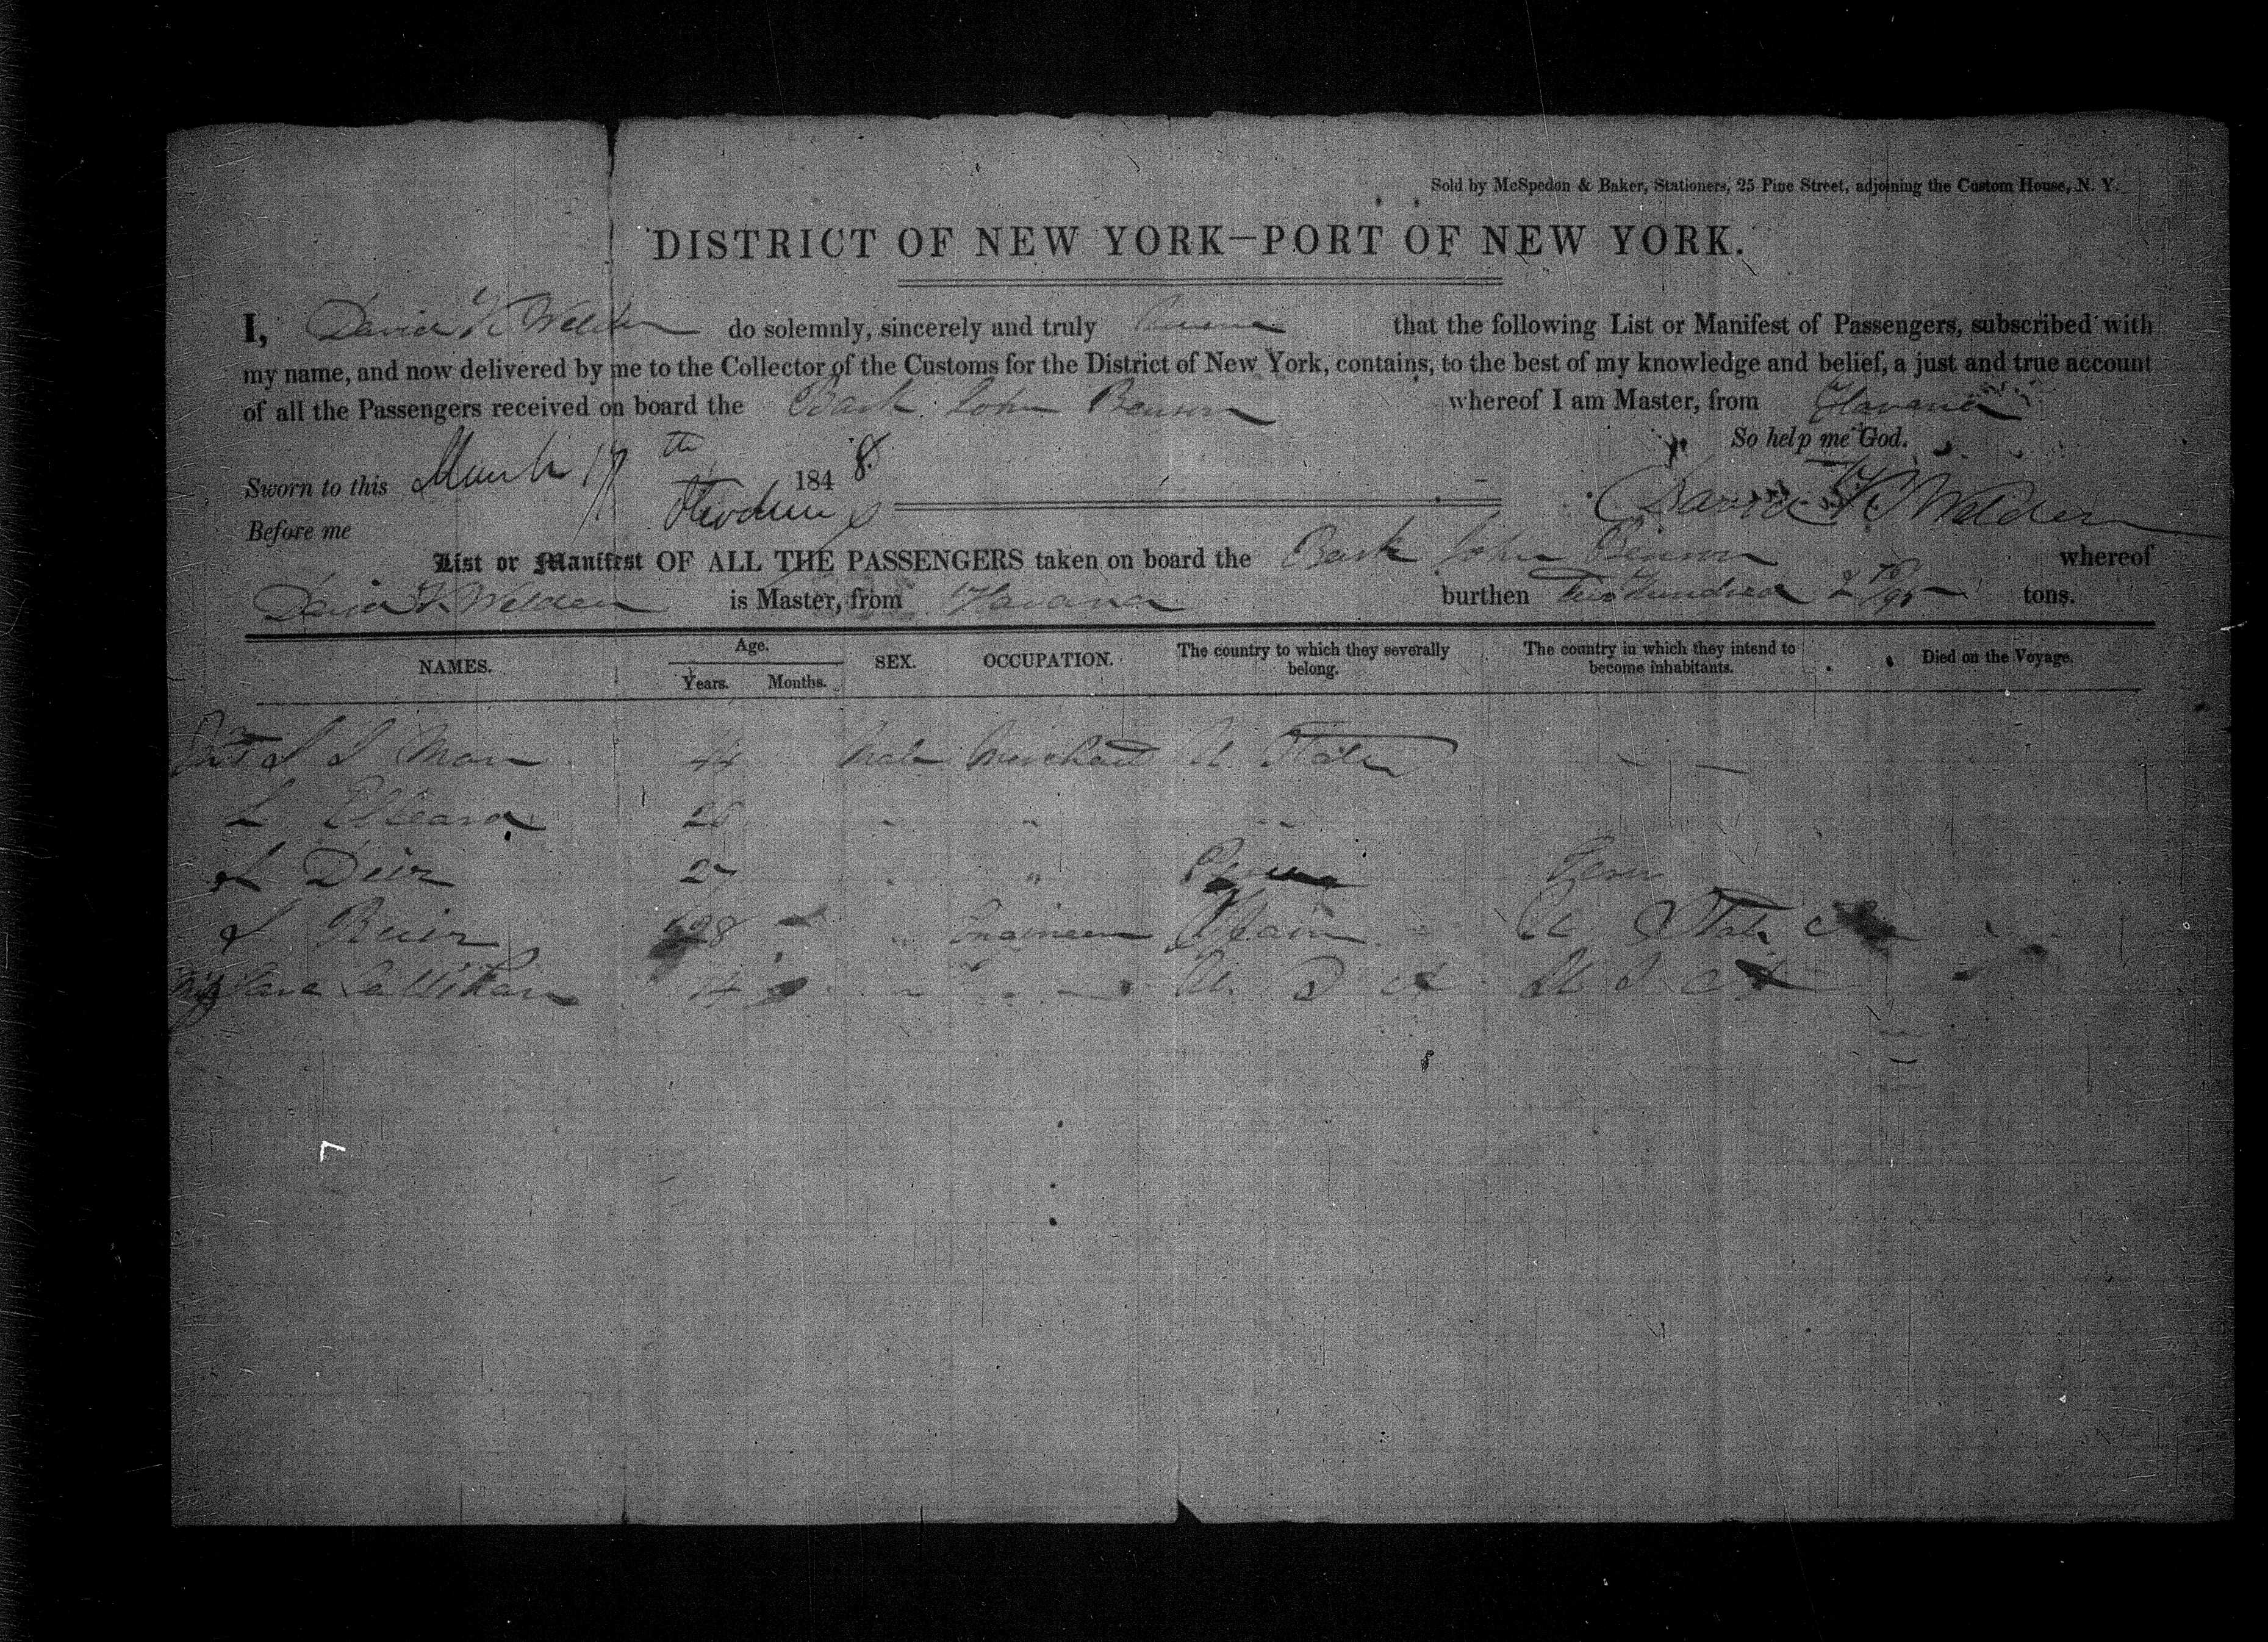 Sold by McSpedon & Baker, Stationers, 25 Pine Street, adjoining the Custom House, N. Y.
DISTRICT OF NEW YORK—PORT OF NEW YORK.
I, David K Welden do solemnly, sincerely and truly that the following List or Manifest of Passengers, subscribed with
my name, and now delivered by me to the Collector of the Customs for the District of New York, contains, to the best of my knowledge and belief, a just and true account
of all the Passengers received on board the Bark John Benson whereof I am Master, from Havana
So help me God.
Sworn to this March 17th 1848.
David K Welden
Before me
List or Manifest OF ALL THE PASSENGERS taken on board the Bark John Benson whereof
David K Welden is Master, from Havana burthen Two Hundred & /95 tons.
NAMES. Age. SEX. OCCUPATION. The country to which they severally belong. The country in which they intend to become inhabitants. Died on the Voyage.
Years. Months.
Man 44 Male Merchant U. States
L 26 " "
L 27 "
Ruiz 28 Engineer Spain U States
14 U. S U S